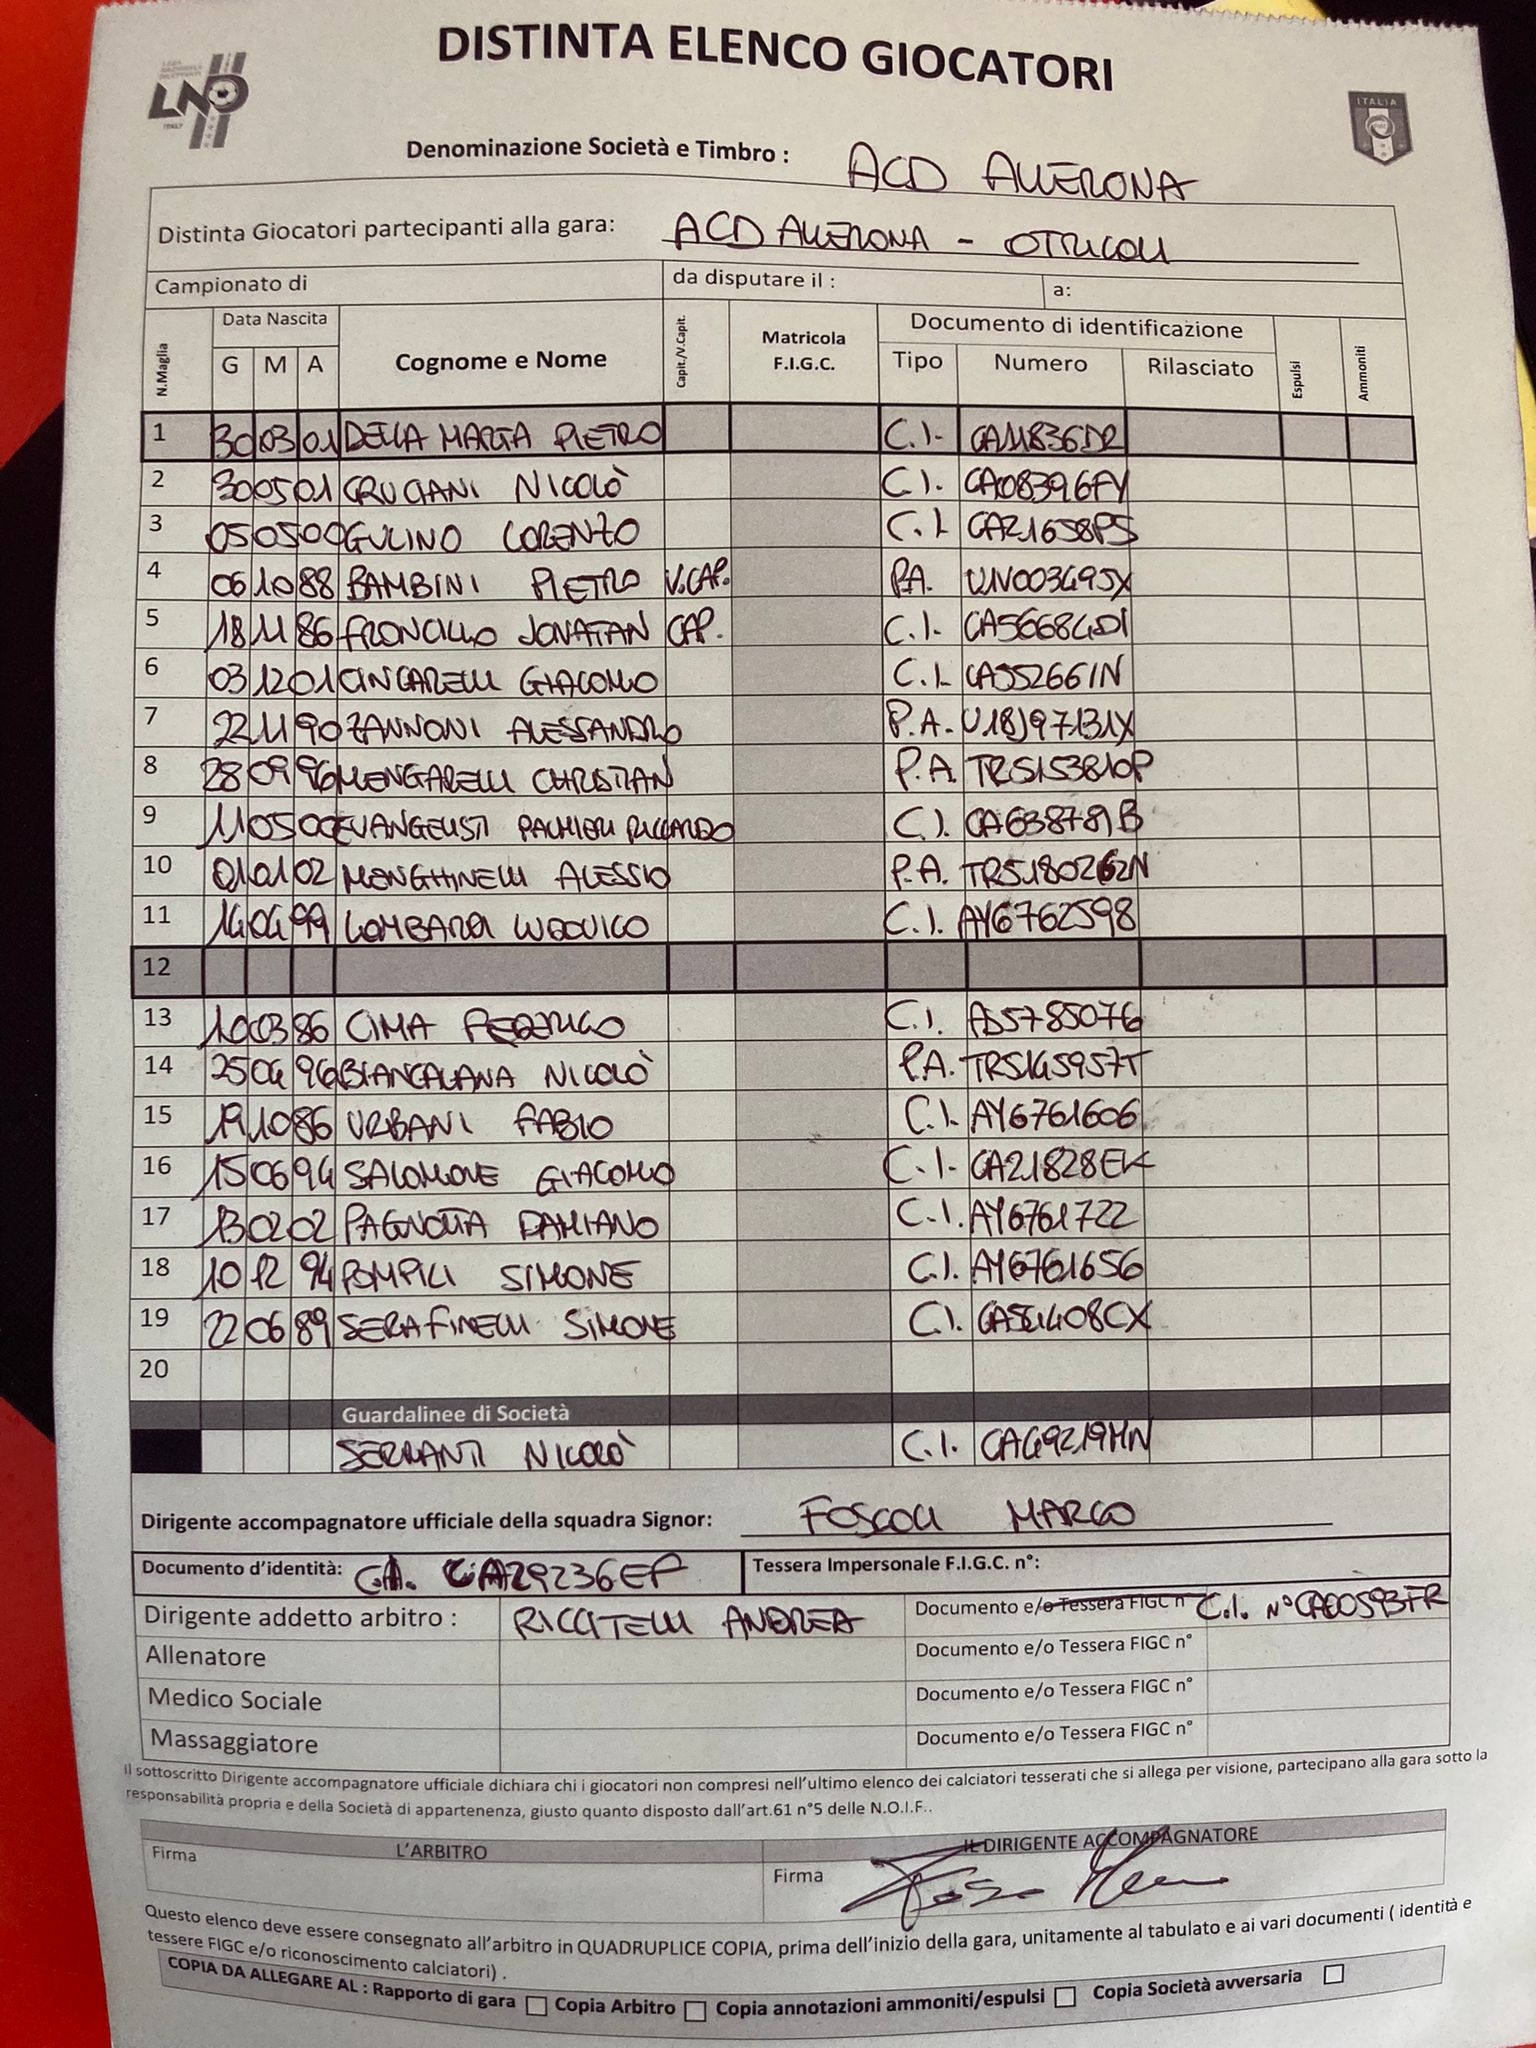 DISTINTA ELENCO GIOCATORI
LND
ITALY
ITALIA
Denominazione Società e Timbro : ACD ALLERONA
Distinta Giocatori partecipanti alla gara: ACD ALLERONA - OTRICOLI
Campionato di da disputare il : a:
N.Maglia Data Nascita G M A Cognome e Nome Capit./V.Capit. Matricola F.I.G.C. Documento di identificazione Tipo Numero Rilasciato Espulsi Ammoniti
1 30 03 01 DELLA MARTA PIETRO C.I. CA11836DR
2 30 05 01 CRUCIANI NICOLÒ C.I. CA08396FY
3 05 05 00 GULINO LORENZO C.I. CA21658PS
4 06 10 88 BAMBINI PIETRO V.CAP. P.A. U1V003495X
5 18 11 86 FRONCILLO JONATAN CAP. C.I. CA56684DI
6 03 12 01 CINCARELLI GIACOMO C.I. CA55266IN
7 22 11 90 ZANNONI ALESSANDRO P.A. U18J97131X
8 28 09 96 MENGARELLI CHRISTIAN P.A. TR5153810P
9 11 05 00 EVANGELISTI PACHIELI RICCARDO C.I. CA63878IB
10 01 01 02 MENGHINELLI ALESSIO P.A. TR5180262N
11 14 04 99 LOMBARDI LUDOVICO C.I. AY6762598
12
13 10 03 86 CIMA FEDERICO C.I. AS5785076
14 25 04 96 BIANCALANA NICOLÒ P.A. TR5145957T
15 19 10 86 URBANI FABIO C.I. AY6761606
16 15 06 94 SALOMONE GIACOMO C.I. CA21828EK
17 13 02 02 PAGNOTTA DAMIANO C.I. AY6761722
18 10 12 94 POMPILI SIMONE C.I. AY6761656
19 22 06 89 SERAFINELLI SIMONE C.I.
20
Guardalinee di Società
SERRANTI NICOLÒ C.I. CA49219MN
Dirigente accompagnatore ufficiale della squadra Signor: FOSCOLI MARCO
Documento d'identità: CA29236EF Tessera Impersonale F.I.G.C. n°:
Dirigente addetto arbitro : RICCITELLI ANDREA Documento e/o Tessera FIGC n° C.I. N° CA00593FR
Allenatore Documento e/o Tessera FIGC n°
Medico Sociale Documento e/o Tessera FIGC n°
Massaggiatore Documento e/o Tessera FIGC n°
Il sottoscritto Dirigente accompagnatore ufficiale dichiara chi i giocatori non compresi nell'ultimo elenco dei calciatori tesserati che si allega per visione, partecipano alla gara sotto la
responsabilità propria e della Società di appartenenza, giusto quanto disposto dall'art.61 n°5 delle N.O.I.F..
L'ARBITRO IL DIRIGENTE ACCOMPAGNATORE
Firma Firma
Questo elenco deve essere consegnato all'arbitro in QUADRUPLICE COPIA, prima dell'inizio della gara, unitamente al tabulato e ai vari documenti ( identità e
tessere FIGC e/o riconoscimento calciatori) .
COPIA DA ALLEGARE AL : Rapporto di gara Copia Arbitro Copia annotazioni ammoniti/espulsi Copia Società avversaria